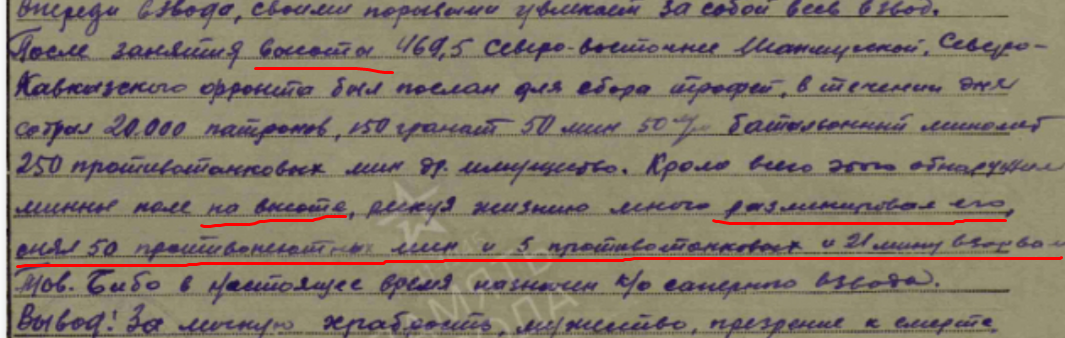 впереди взвода, своими порывами увлекает за собой весь взвод.
После занятия высоты 469,5 Северо-восточнее Шапшугской, Северо-
Кавказского фронта был послан для сбора трофей, в течении дня
собрал 20.000 патронов, 150 гранат 50 мин 50 батальонный миномет
250 противотанковых мин др. имущество. Кроме всего этого обнаружил
минное поле на высоте, рискуя жизнию много разминировал его,
снял 50 противопехотных мин и 5 противотанковых и 21 мину взорвал
Тов. Бибо в настоящее время назначен к/о саперного взвода.
Вывод: За личную храбрость, мужество, презрение к смерте,
ПАМЯТЬ
НАРОДА